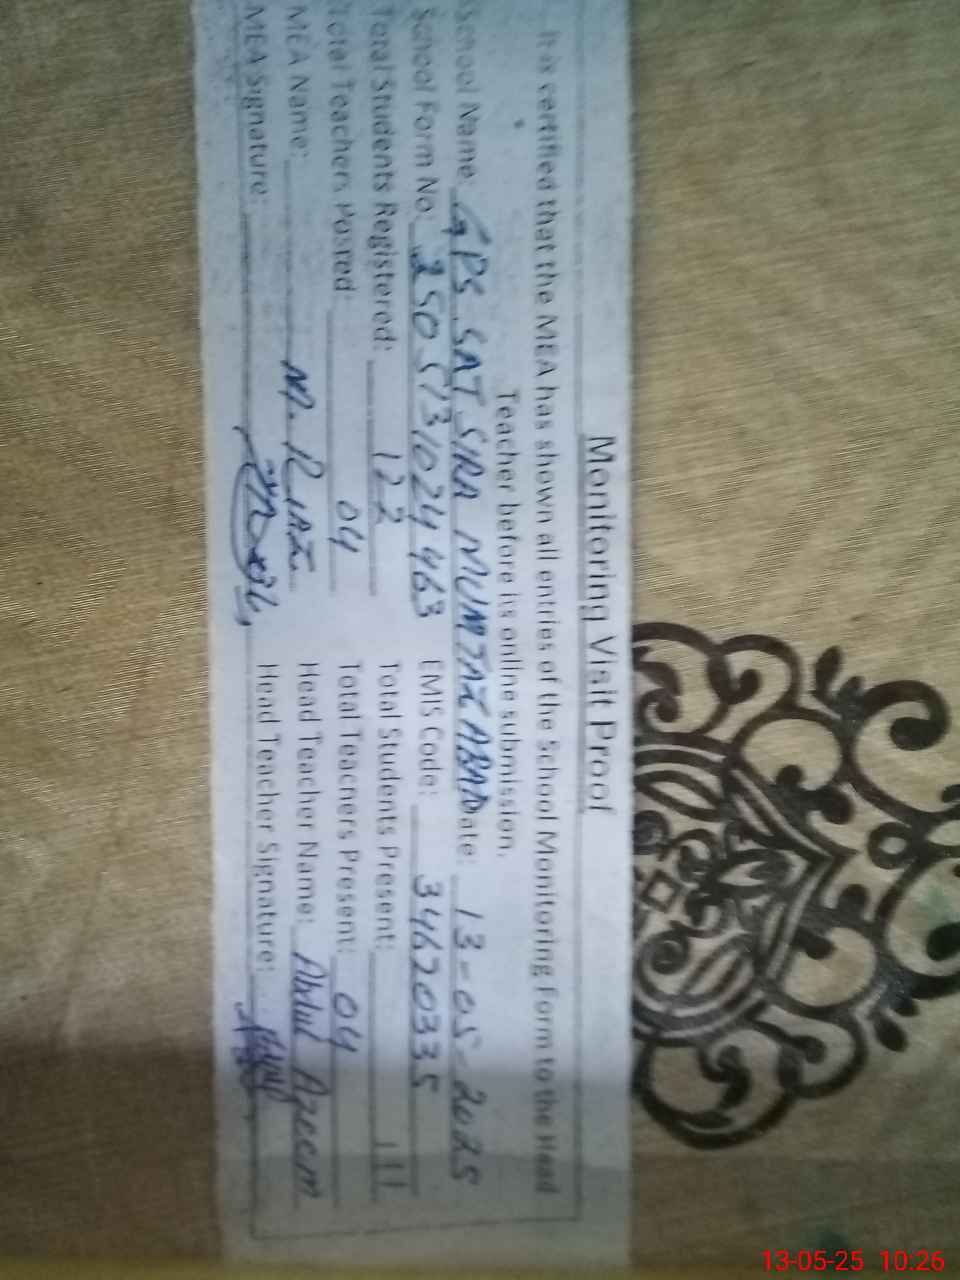 Monitoring Visit Proof
It is certified that the MEA has shown all entries of the School Monitoring Form to the Head
Teacher before its online submission.
School Name: GPS SAT SIRA MUMTAZ ABAD Date: 13-05-2025
School Form No. EMIS Code: 34620335
Total Students Registered: 122 Total Students Present: 111
Total Teachers Posted: 04 Total Teachers Present: 04
MEA Name: M. RIAZ Head Teacher Name: Abdul Azeem
MEA Signature: Head Teacher Signature:
13-05-25 10:26